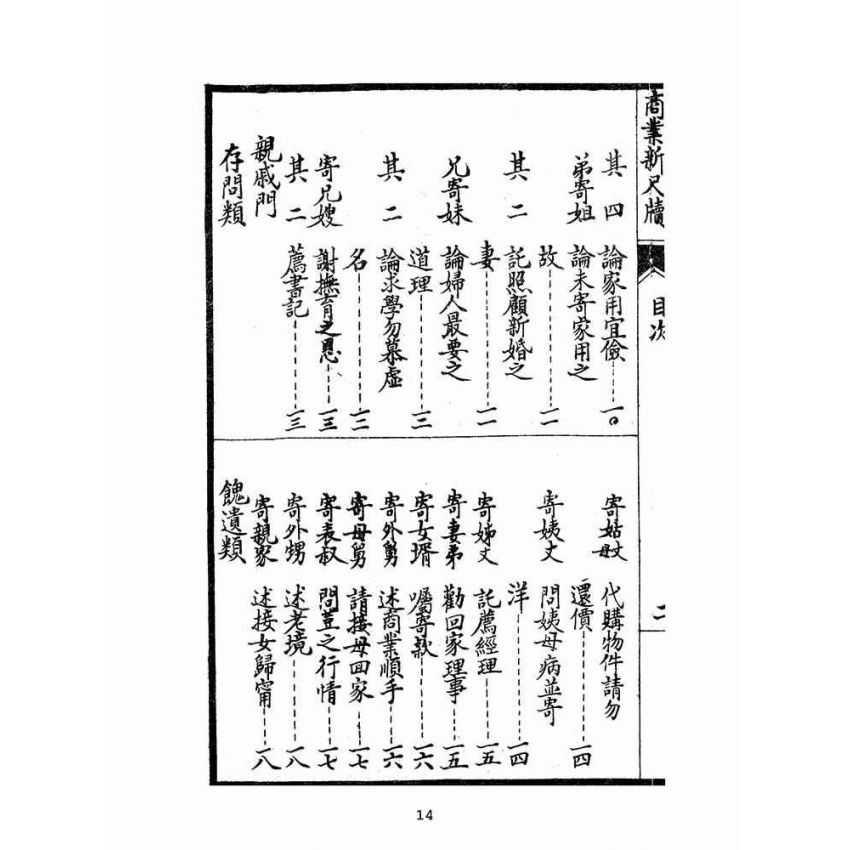 商業新尺牘 目次 二
其四 論家用宜儉 一〇
弟寄姐 論未寄家用之
故 一一
其二 託照顧新婚之
妻 一一
兄寄妹 論婦人最要之
道理 一二
其二 論求學勿慕虛
名 一二
寄兄嫂 謝撫育之恩 一三
其二 薦書記 一三
親戚門
存問類
寄姑丈母 代購物件請勿
還價 一四
寄姨丈 問姨母病並寄
洋 一四
寄姊丈 託薦經理 一五
寄妻弟 勸回家理事 一五
寄女壻 囑寄款 一六
寄外舅 述商業順手 一六
寄母舅 請接母回家 一七
寄表叔 問荳之行情 一七
寄外甥 述老境 一八
寄親家 述接女歸甯 一八
餽遺類
14